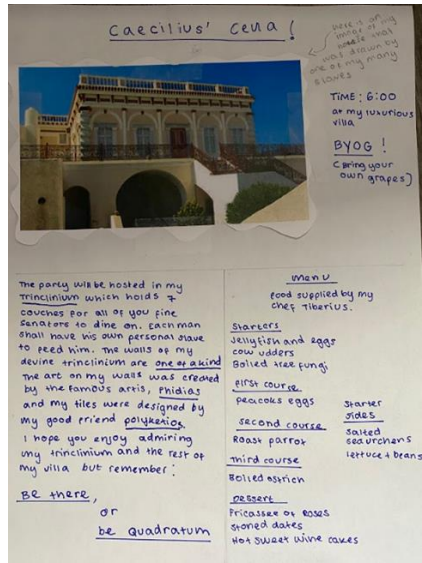 Caecilius' Cena!
here is an
image of my
that
was drawn by
one of my many
slaves
TIME: 6:00
at my luxurious
villa
BYOG!
(Bring your
own grapes)
The party will be hosted in my
Trinclinium which holds 7
couches for all of you fine
Senators to dine on. Each man
shall have his own personal slave
to feed him. The walls of my
devine trinclinium are one of a kind
The art on my walls was created
by the famous artis, Phidias
and my tiles were designed by
my good friend polyketios.
I hope you enjoy admiring
my trinclinium and the rest of
my villa but remember:
Be there,
or
be Quadratum
menu
Food supplied by my
chef Tiberius.
Starters
Jellyfish and eggs
cow udders
Boiled tree fungi
First course
peacocks eggs
second course
Roast parrot
Third course
Boiled ostrich
Dessert
Fricassee of Roses
stoned dates
Hot sweet wine cakes
starter
sides
salted
sea urchens
lettuce + beans